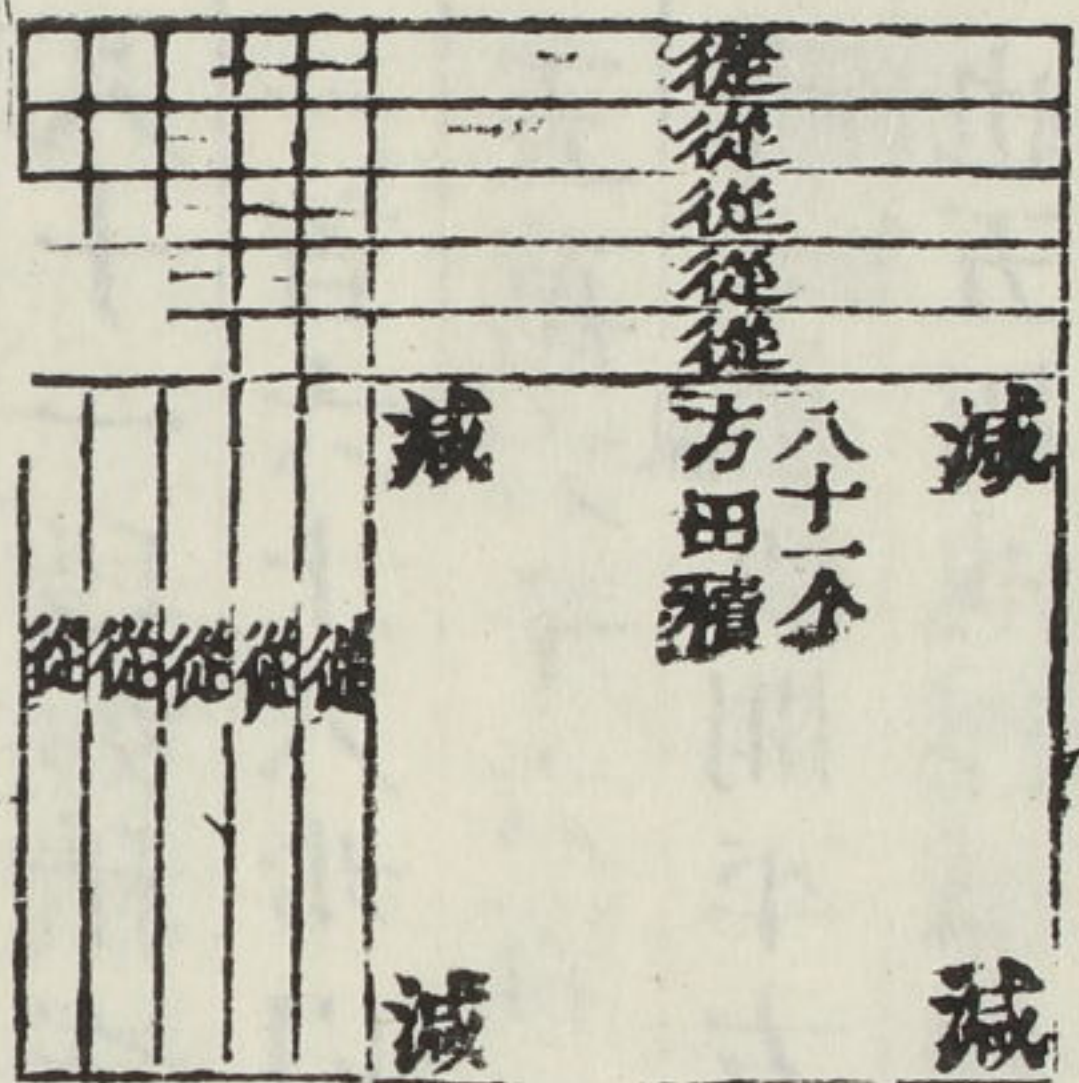 從
從
從
從
從
減
八十一个
方田積
減
從從從從從
減
減